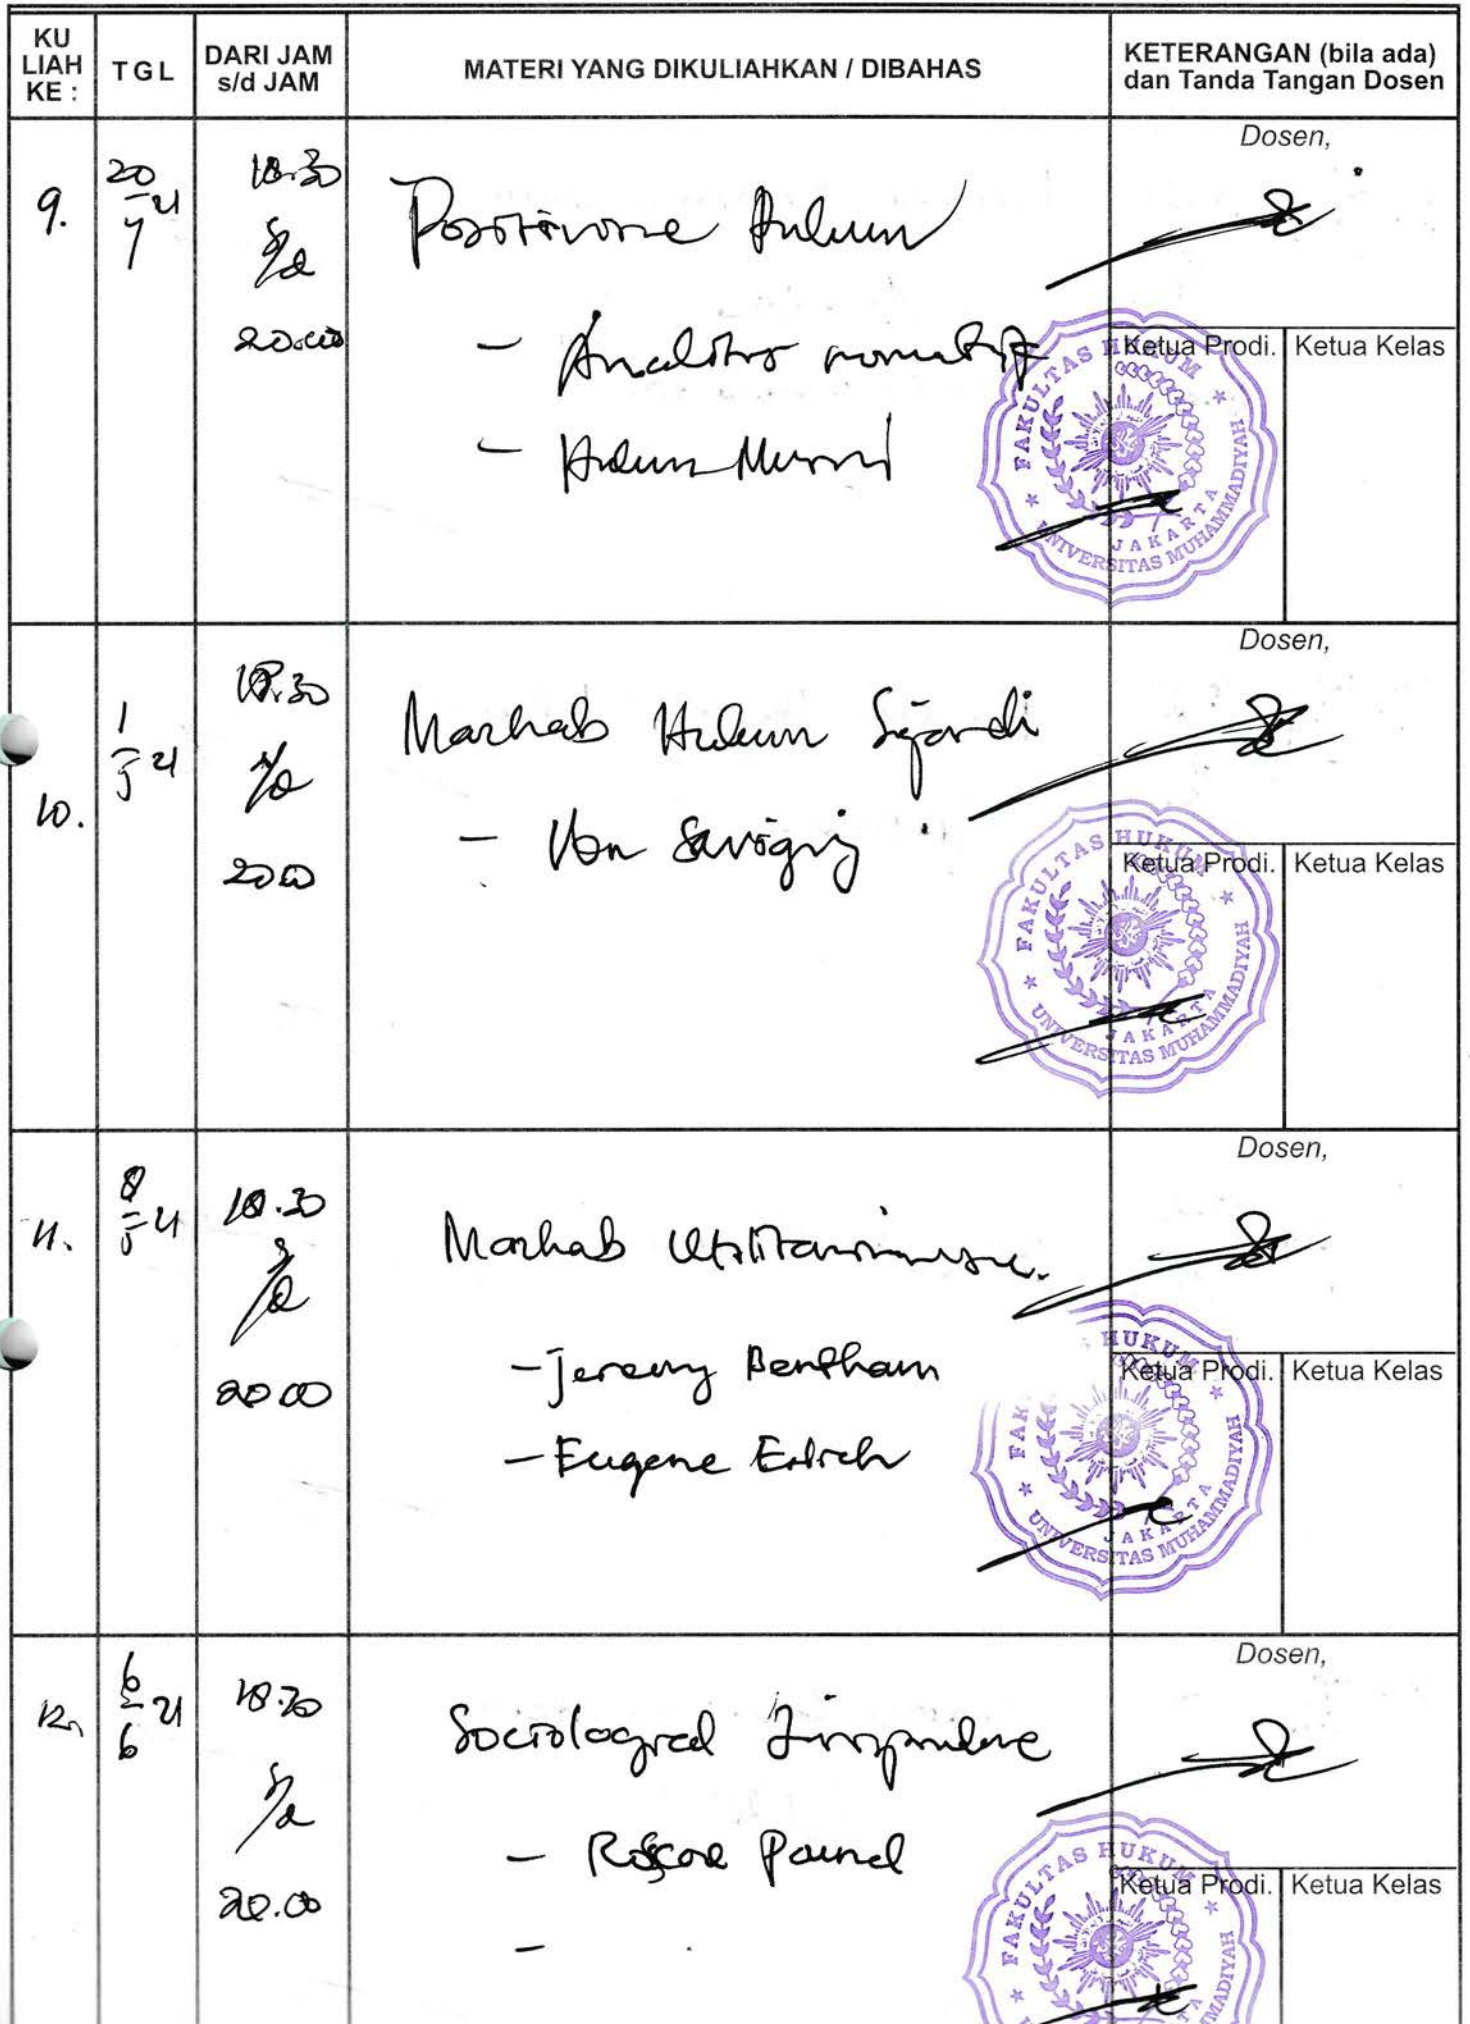 KU LIAH KE :
TGL
DARI JAM s/d JAM
MATERI YANG DIKULIAHKAN / DIBAHAS
KETERANGAN (bila ada) dan Tanda Tangan Dosen
9.
20
21
18.30
s/d
20.00
Positivisme Hukum
- Analitis normatif
- Hukum Murni
Dosen,
Ketua Prodi.
Ketua Kelas
FAKULTAS HUKUM
UNIVERSITAS MUHAMMADIYAH
JAKARTA
10.
1
5 21
18.30
s/d
20.00
Mazhab Hukum Sejarah
- Von Savigny
Dosen,
Ketua Prodi.
Ketua Kelas
FAKULTAS HUKUM
UNIVERSITAS MUHAMMADIYAH
JAKARTA
11.
8
5 21
18.30
s/d
20.00
Mazhab Utilitarianisme.
- Jeremy Bentham
- Eugene Erlich
Dosen,
Ketua Prodi.
Ketua Kelas
HUKUM
UNIVERSITAS MUHAMMADIYAH
JAKARTA
12.
6
6 21
18.30
s/d
20.00
Sociological Jurisprudence
- Roscoe Pound
-
Dosen,
Ketua Prodi.
Ketua Kelas
FAKULTAS HUKUM